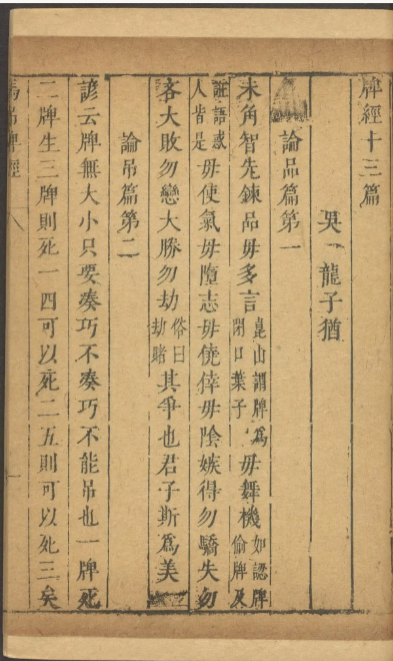 牌經十三篇
吳 龍子猶
論品篇第一
未角智先鍊品毋多言崑山謂牌為閉口葉子毋舞機如認牌偷牌及
誑語惑人皆是毋使氣毋隳志毋僥倖毋陰嫉得勿驕失勿
吝大敗勿戀大勝勿劫俗曰劫賭其爭也君子斯為美
論吊篇第二
諺云牌無大小只要湊巧不湊巧不能吊也一牌死
二牌生三牌則死一四可以死二五則可以死三矣
馬吊牌經 一